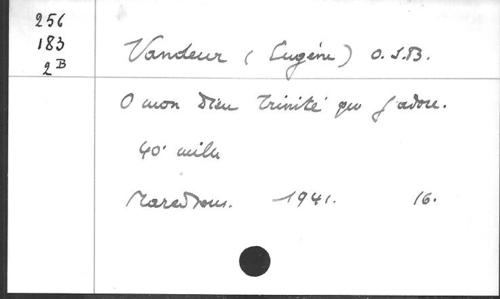 256
183
2B
Vandeur (Eugène) O.S.B.
O mon Dieu Trinité que j'adore.
40e mille
Maredsous. 1941. 16.